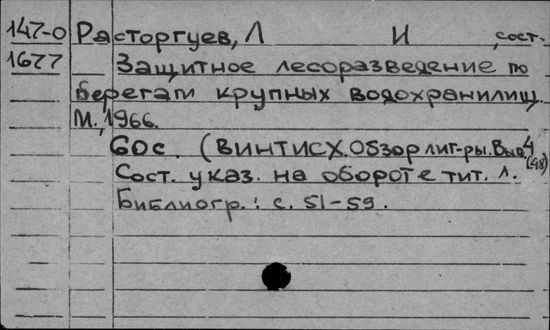 147-0 Расторгуев, Л И , сост.
1677 Защитное лесоразведение по
берегам крупных водохранилищ.
М., 1966.
60с. (ВИНТИСХ. Обзор лит-ры. Вып. 4 (48)
Сост. указ. на обороте тит. л.
Библиогр.: с. 51-59.